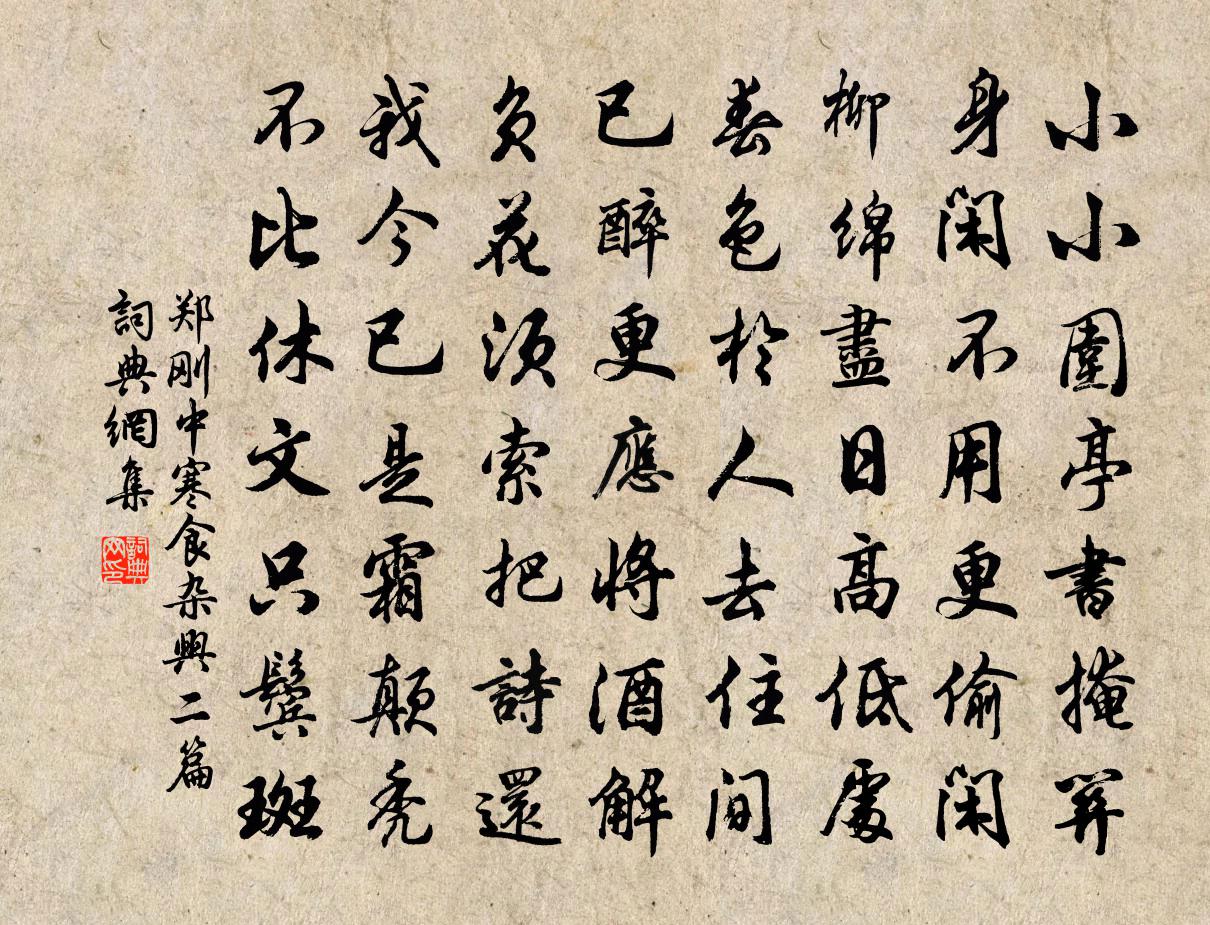 小小園亭書掩关
身闲不用更偷闲
柳绵盡日高低處
春色於人去住间
已醉更應將酒解
负花须索把詩還
我今已是霜颠秃
不比休文只鬢斑
郑刚中寒食杂興二篇
詞典網集
詞典网印